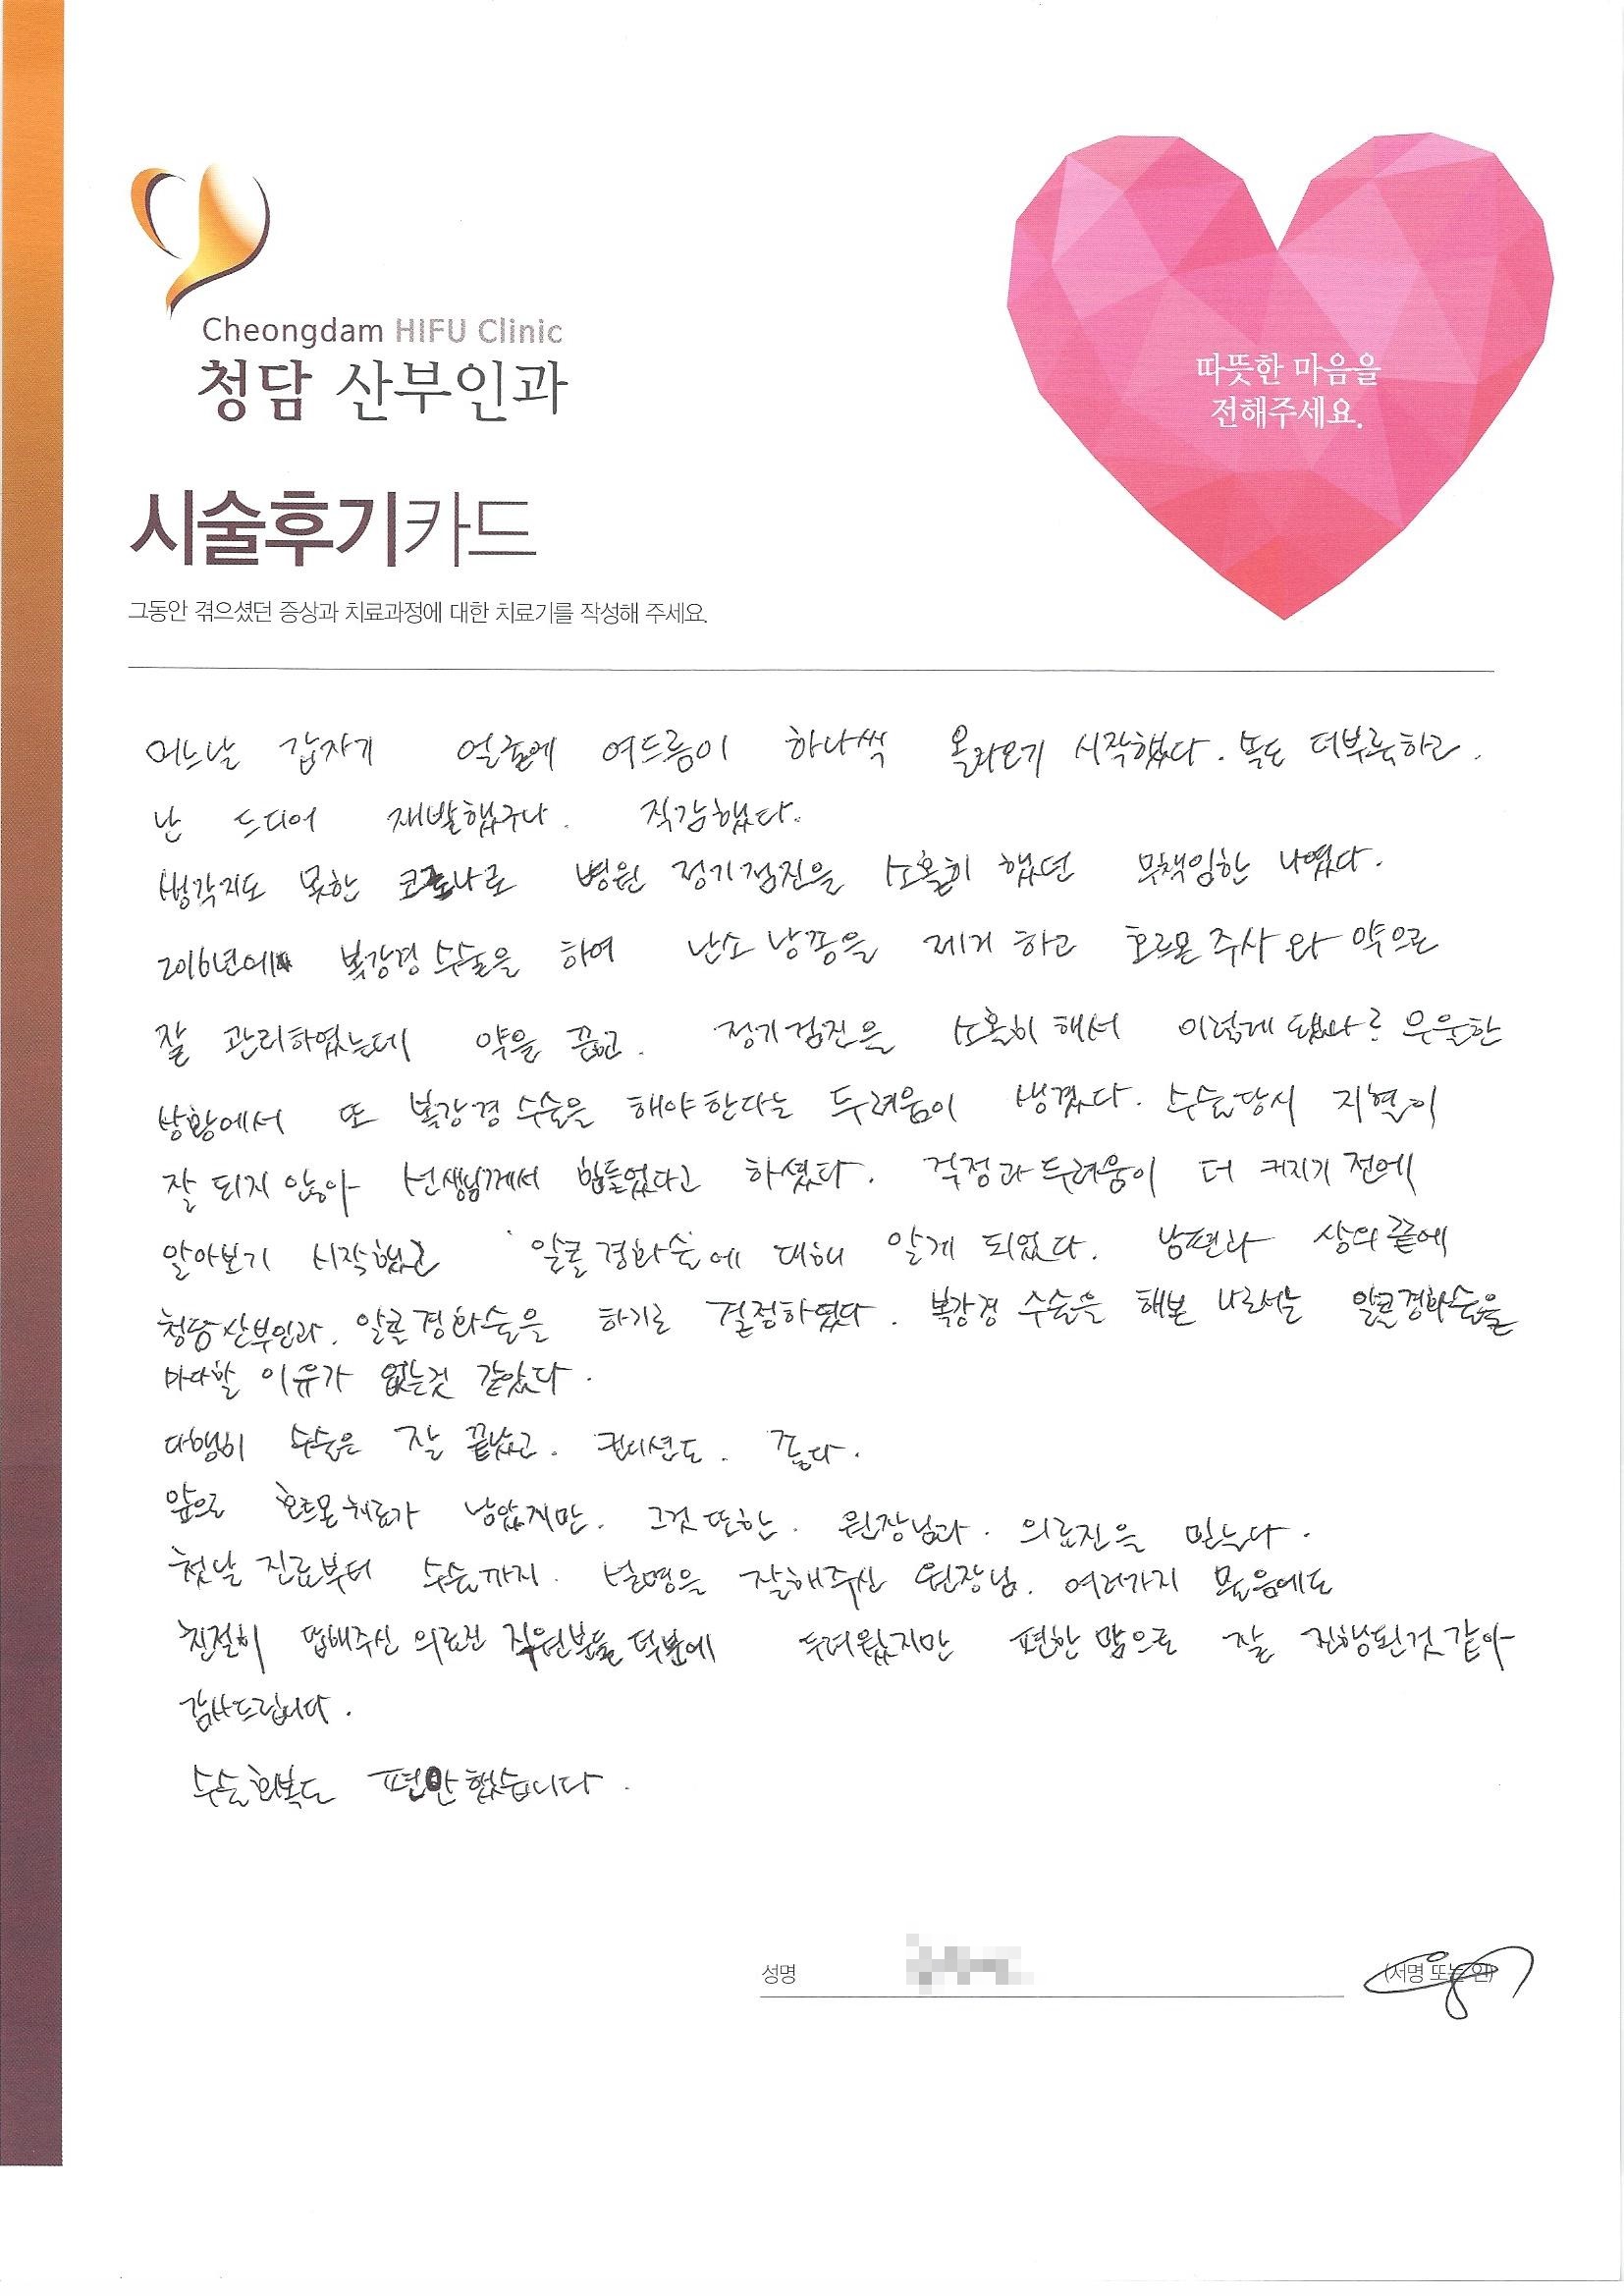 Cheongdam HIFU Clinic
청담 산부인과
따뜻한 마음을
전해주세요.
시술후기카드
그동안 겪으셨던 증상과 치료과정에 대한 치료기를 작성해 주세요.
어느날 갑자기 얼굴에 여드름이 하나씩 올라오기 시작했다. 복도 더부룩하고.
난 드디어 재발했구나. 직감했다.
생각지도 못한 코로나로 병원 정기검진을 소홀히 했던 무책임한 나였다.
2016년에 복강경 수술을 하여 난소 낭종을 제거 하고 호르몬 주사 와 약으로
잘 관리하였는데 약을 끊고. 정기검진을 소홀히 해서 이렇게 됐나? 우울한
상황에서 또 복강경 수술을 해야 한다는 두려움이 생겼다. 수술당시 지혈이
잘 되지 않아 선생님께서 힘들었다고 하셨다. 걱정과 두려움이 더 커지기 전에
알아보기 시작했고 알콜경화술에 대해 알게 되었다. 남편과 상의 끝에
청담산부인과. 알콜경화술을 하기로 결정하였다. 복강경 수술을 해본 나로서는 알콜경화술을
마다할 이유가 없는것 같았다.
다행히 수술은 잘 끝났고. 컨디션도. 좋다.
앞으로 호르몬치료가 남았지만. 그것 또한. 원장님과. 의료진을 믿는다.
첫날 진료부터 수술까지. 설명을 잘해주신 원장님. 여러가지 물음에도
친절히 답해주신 의료진 직원분들 덕분에 두려웠지만 편한 맘으로 잘 진행된것 같아
감사드립니다.
수술 회복도 편안했습니다.
성명
(서명 또는 인)